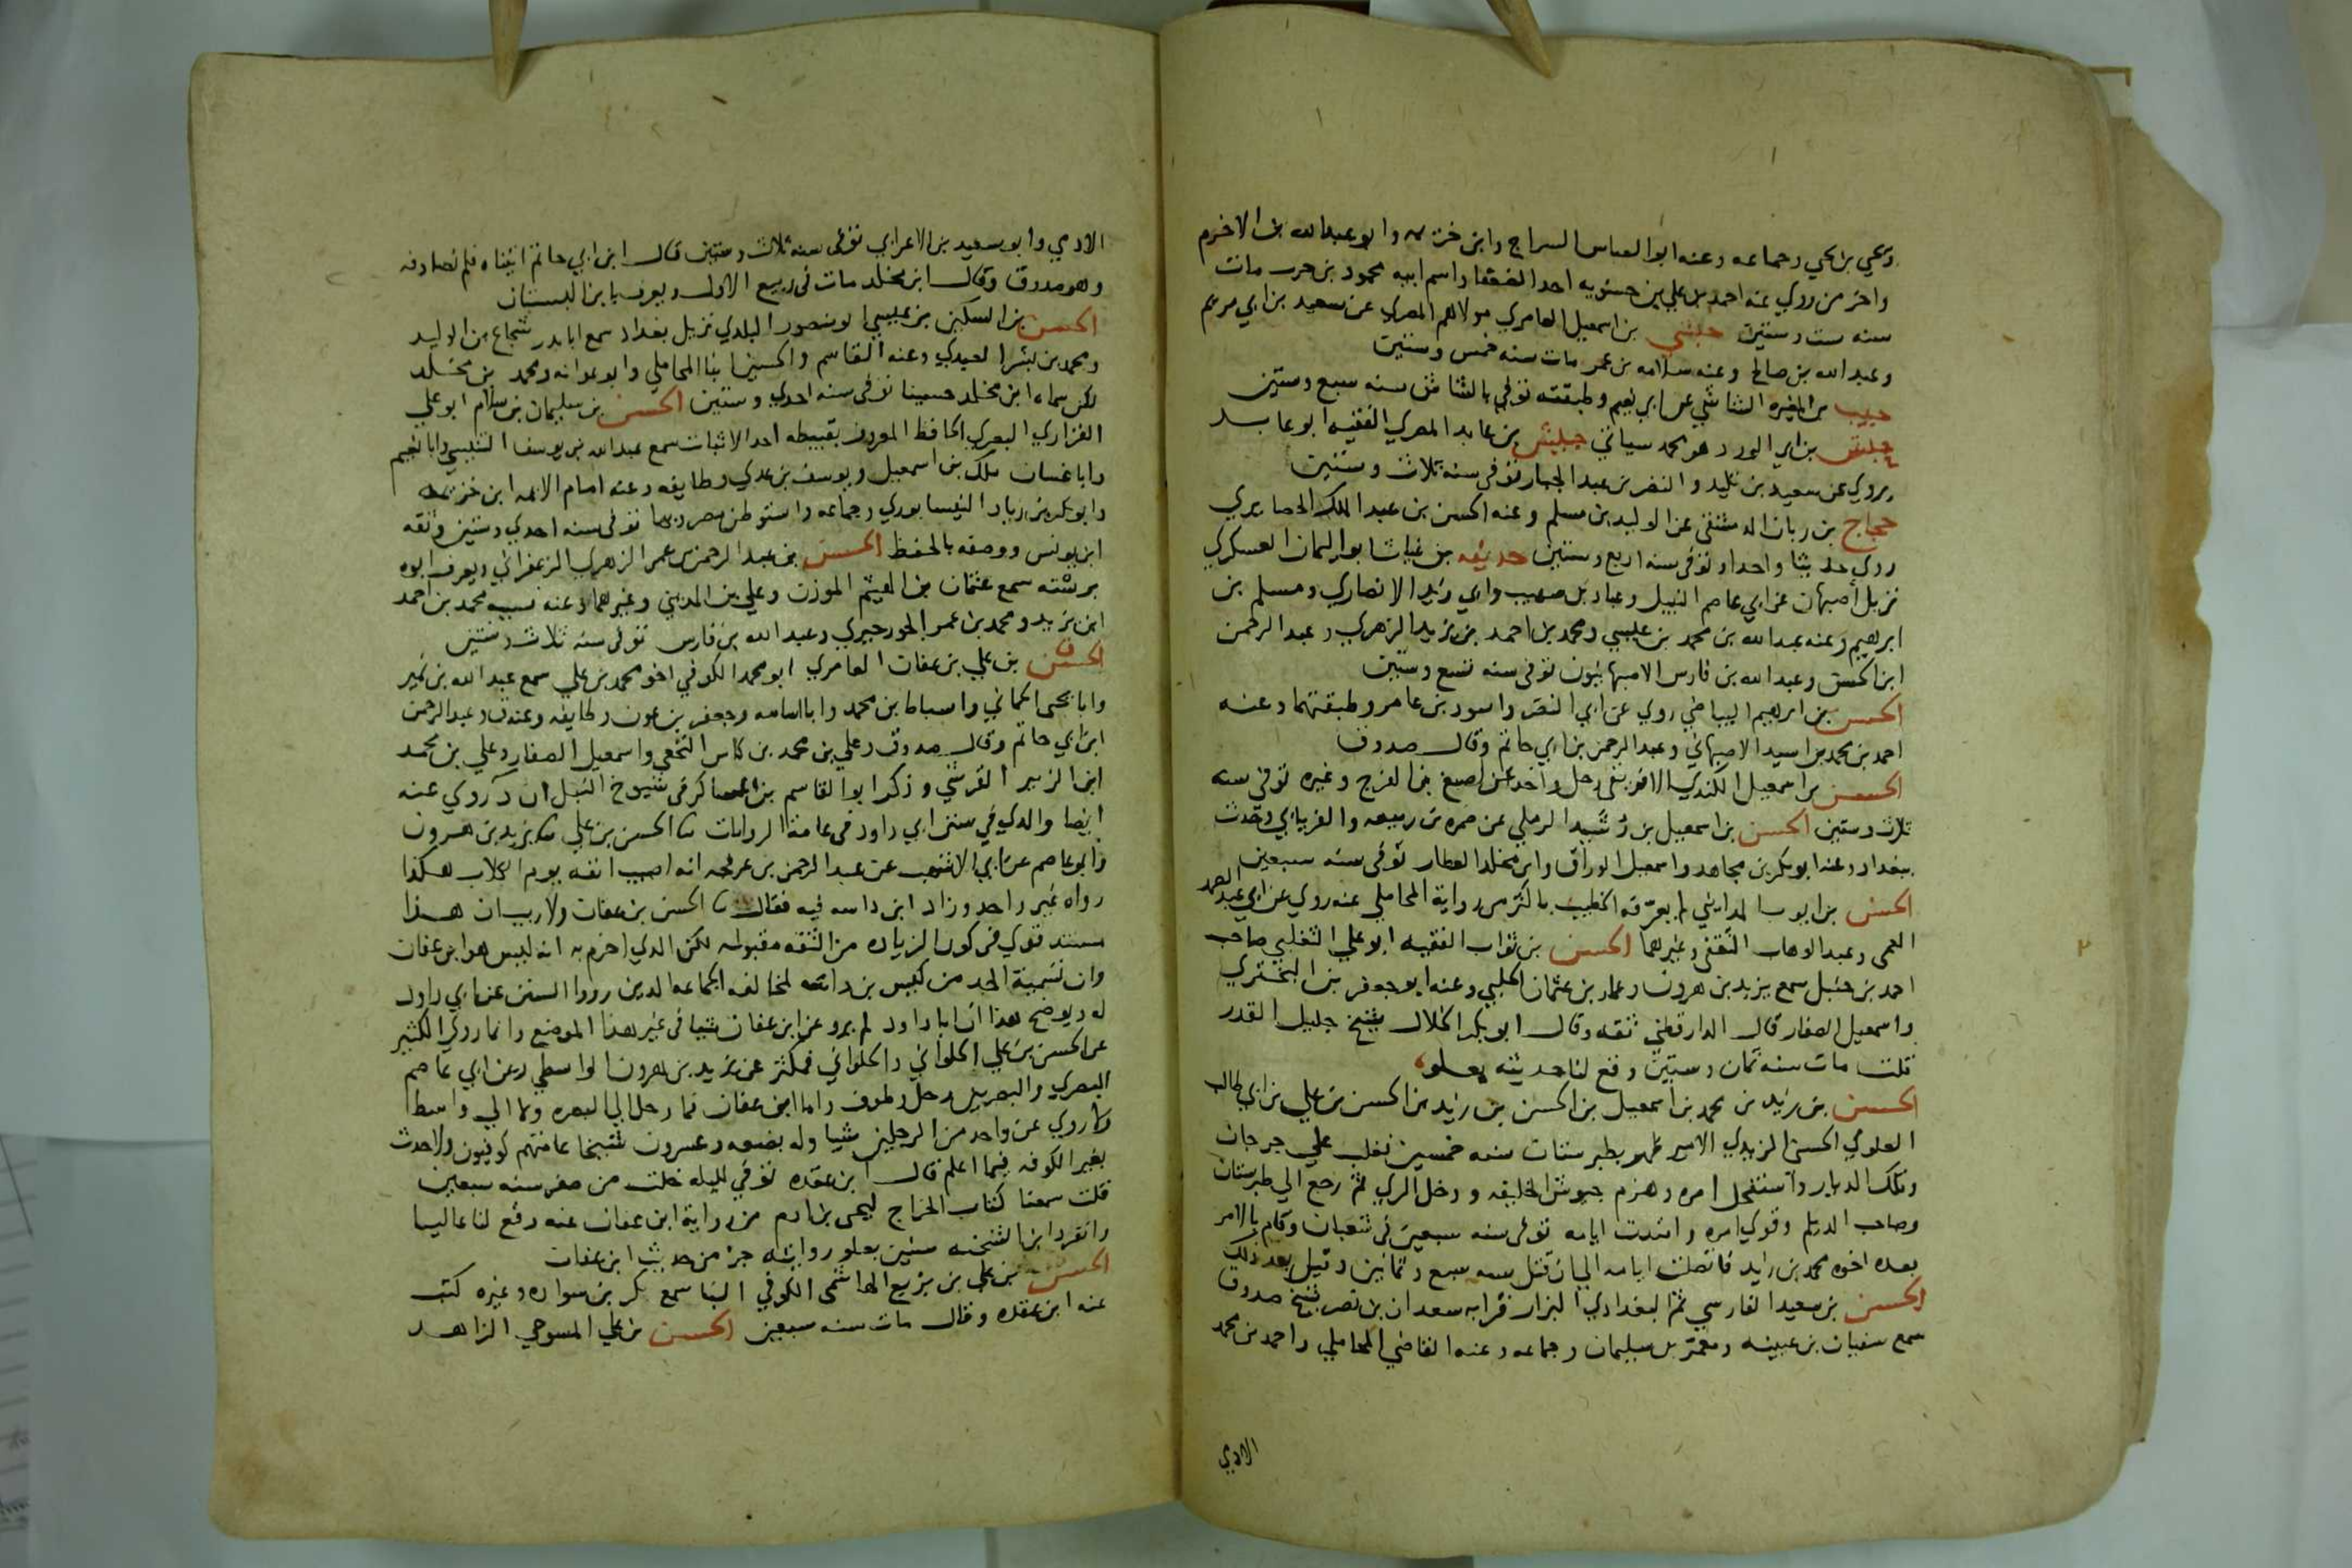 ويحيى بن يحيى وجماعه وعنه ابو العباس السراج وابن خزيمه وابو عبدالله بن الاخرم
واخر من روي عنه احمد بن علي بن حسنويه احد الضعفا واسم ابيه محمود بن حرب مات
سنه ست وستين حبشي بن اسمعيل العامري مولاهم المصري عن سعيد بن ابي مريم
وعبد الله بن صالح وعنه سلامه بن عمر مات سنه خمس وستين
حبيب بن المغيره الشاشي عن ابي نعيم وطبقته توفي بالشاش سنه سبع وستين
حبش بن ابي الورد هو محمد سياتي حبيش بن عابد المصري الفقيه ابو عابد
يروي عن سعيد بن تليد و النضر بن عبد الجبار توفى سنه ثلاث وستين
حجاج بن ريان الدمشقي عن الوليد بن مسلم وعنه الحسن بن عبد الملك الحصايري
روي حديثا واحدا وتوفى سنه اربع وستين حذيفه بن غياث ابو اليمان العسكري
نزيل اصبهان عن ابي عاصم النبيل وعباد بن صهيب وابي زيد الانصاري ومسلم بن
ابرهيم وعنه عبد الله بن محمد بن عيسي ومحمد بن احمد بن يزيد الزهري وعبد الرحمن
ابن الحسن وعبد الله بن فارس الاصبهانيون توفى سنه تسع وستين
الحسن بن ابرهيم البياضي روي عن ابي النضر واسود بن عامر وطبقتهما وعنه
احمد بن محمد بن اسيد الاصبهاني وعبد الرحمن بن ابي حاتم وقال صدوق
الحسن بن اسمعيل الكندي الافريقى رحل واخذ عن اصبغ بن الفرج وغيره توفى سنه
ثلاث وستين الحسن بن اسمعيل بن رشيد الرملي عن ضمره بن ربيعه والفريابي وحدث
ببغداد وعنه ابو بكر بن مجاهد واسمعيل الوراق وابن مخلد العطار توفى سنه سبعين
الحسن بن ابوب المدايني لم يعرفه الخطيب باكثر من رواية المحاملي عنه روي عن ابي عبد الصمد
العمى وعبد الوهاب الثقفى وغيرهما الحسن بن ثواب الفقيه ابو علي الثعلبي صاحب
احمد بن حنبل سمع يزيد بن هرون وعمار بن عثمان الحلبي وعنه ابو جعفر بن البختري
واسمعيل الصفار قال الدارقطني ثقه وقال ابو بكر الخلال شيخ جليل القدر
قلت مات سنه ثمان وستين وقع لنا حديثه بعلو
الحسن بن زيد بن محمد بن اسمعيل بن الحسن بن زيد بن الحسن بن علي بن ابي طالب
العلوي الحسنى الزيدي الامير ظهر بطبرستان سنه خمسين تغلب علي جرجان
وتلك الديار واستفحل امره وهزم جيوش الخليفه و دخل الري ثم رجع الي طبرستان
وصاحب الديلم وقوي امره وامتدت ايامه توفى سنه سبعين فى شعبان وقام بالامر
بعده اخوه محمد بن زيد فاتصلت ايامه الي ان قتل سنه سبع وثمانين وقيل بعد ذلك
الحسن بن سعيد الفارسي ثم البغدادي البزار قرابه سعدان بن نصر شيخ صدوق
سمع سفيان بن عيينه ومعمر بن سليمان وجماعه وعنه القاضي المحاملي واحمد بن محمد
الادمي
الادمي وابو سعيد بن الاعرابي توفى سنه ثلاث وستين قال ابن ابي حاتم اتيناه فلم نصادفه
وهو صدوق وقال ابن مخلد مات فى ربيع الاول ويعرف بابن البستنان
الحسن بن السكين بن عيسى ابو منصور البلدي نزيل بغداد سمع ابا بدر شجاع بن الوليد
ومحمد بن بشر العبدي وعنه القاسم والحسين ابنا المحاملي وابو عوانه ومحمد بن مخلد
لكن سماه ابن مخلد حسينا توفى سنه احدي وستين الحسن بن سليمان بن سلام ابو علي
الفزاري البصري الحافظ المعروف بقبيطه احد الاثبات سمع عبد الله بن يوسف التنيسي وابا نعيم
وابا غسان ملك بن اسمعيل ويوسف بن عدي وطايفه وعنه امام الايمه ابن خزيمه
وابو بكر بن زياد النيسابوري وجماعه واستوطن مصر وبها توفى سنه احدي وستين وثقه
ابن يونس ووصفه بالحفظ الحسن بن عبد الرحمن بن عمر الزهري الزعفراني ويعرف ابوه
برسته سمع عثمان بن الهيثم الموذن وعلي بن المديني وغيرهما وعنه نسيبه محمد بن احمد
ابن يزيد ومحمد بن عمر الجورجيري وعبد الله بن فارس توفى سنه ثلاث وستين
الحسن بن علي بن عفان العامري ابو محمد الكوفي اخو محمد بن علي سمع عبد الله بن نمير
وابا يحيى الحماني واسباط بن محمد وابا اسامه وجعفر بن عون وطايفه وعنه ق وعبد الرحمن
ابن ابي حاتم وقال صدوق وعلي بن محمد بن كاس النخعي واسمعيل الصفار وعلي بن محمد
ابن الزبير القرشي وذكر ابو القاسم بن عساكر فى شيوخ النبل ان د روي عنه
ايضا والذي في سنن ابي داود فى عامة الروايات نا الحسن بن علي نا يزيد بن هرون
وابو عاصم عن ابي الاشهب عن عبد الرحمن بن عرفجه انه اصيب انفه يوم الكلاب هكذا
رواه غير واحد وزاد ابن داسه فيه فقال نا الحسن بن عفان ولا ريب ان هذا
مستند قوي فى كون الزياده من الثقه مقبوله لكن الذي اجزم به انه ليس هو ابن عفان
وان تسمية الجد من كيس بن داسه لمخالفه الجماعه الذين رووا السنن عن ابي داود
له ويوضح هذا ان ابا داود لم يرو عن ابن عفان شيا فى غير هذا الموضع وانما روي الكثير
عن الحسن بن علي الحلواني والحلواني فمكثر عن يزيد بن هرون الواسطي وعن ابي عاصم
البصري والبصريين رحل ولطوف واما ابن عفان فما رحل الي البصره ولا الي واسط
ولا روي عن واحد من الرجلين شيا وله بضعه وعشرون شيخا عامتهم كوفيون ولا حدث
بغير الكوفه فيما اعلم قال ابن عقده توفي لليله خلت من صفر سنه سبعين
قلت سمعنا كتاب الخراج ليحيى بن ادم من رواية ابن عفان عنه وقع لنا عاليا
وانفرد ابن الشحنه سنين بعلو روايته جزء من حديث ابن عفان
الحسن بن علي بن بزيع الهاشمى الكوفي البنا سمع بكر بن سواده وغيره كتب
عنه ابن عقده وقال مات سنه سبعين الحسن بن علي المسوحي الزاهد